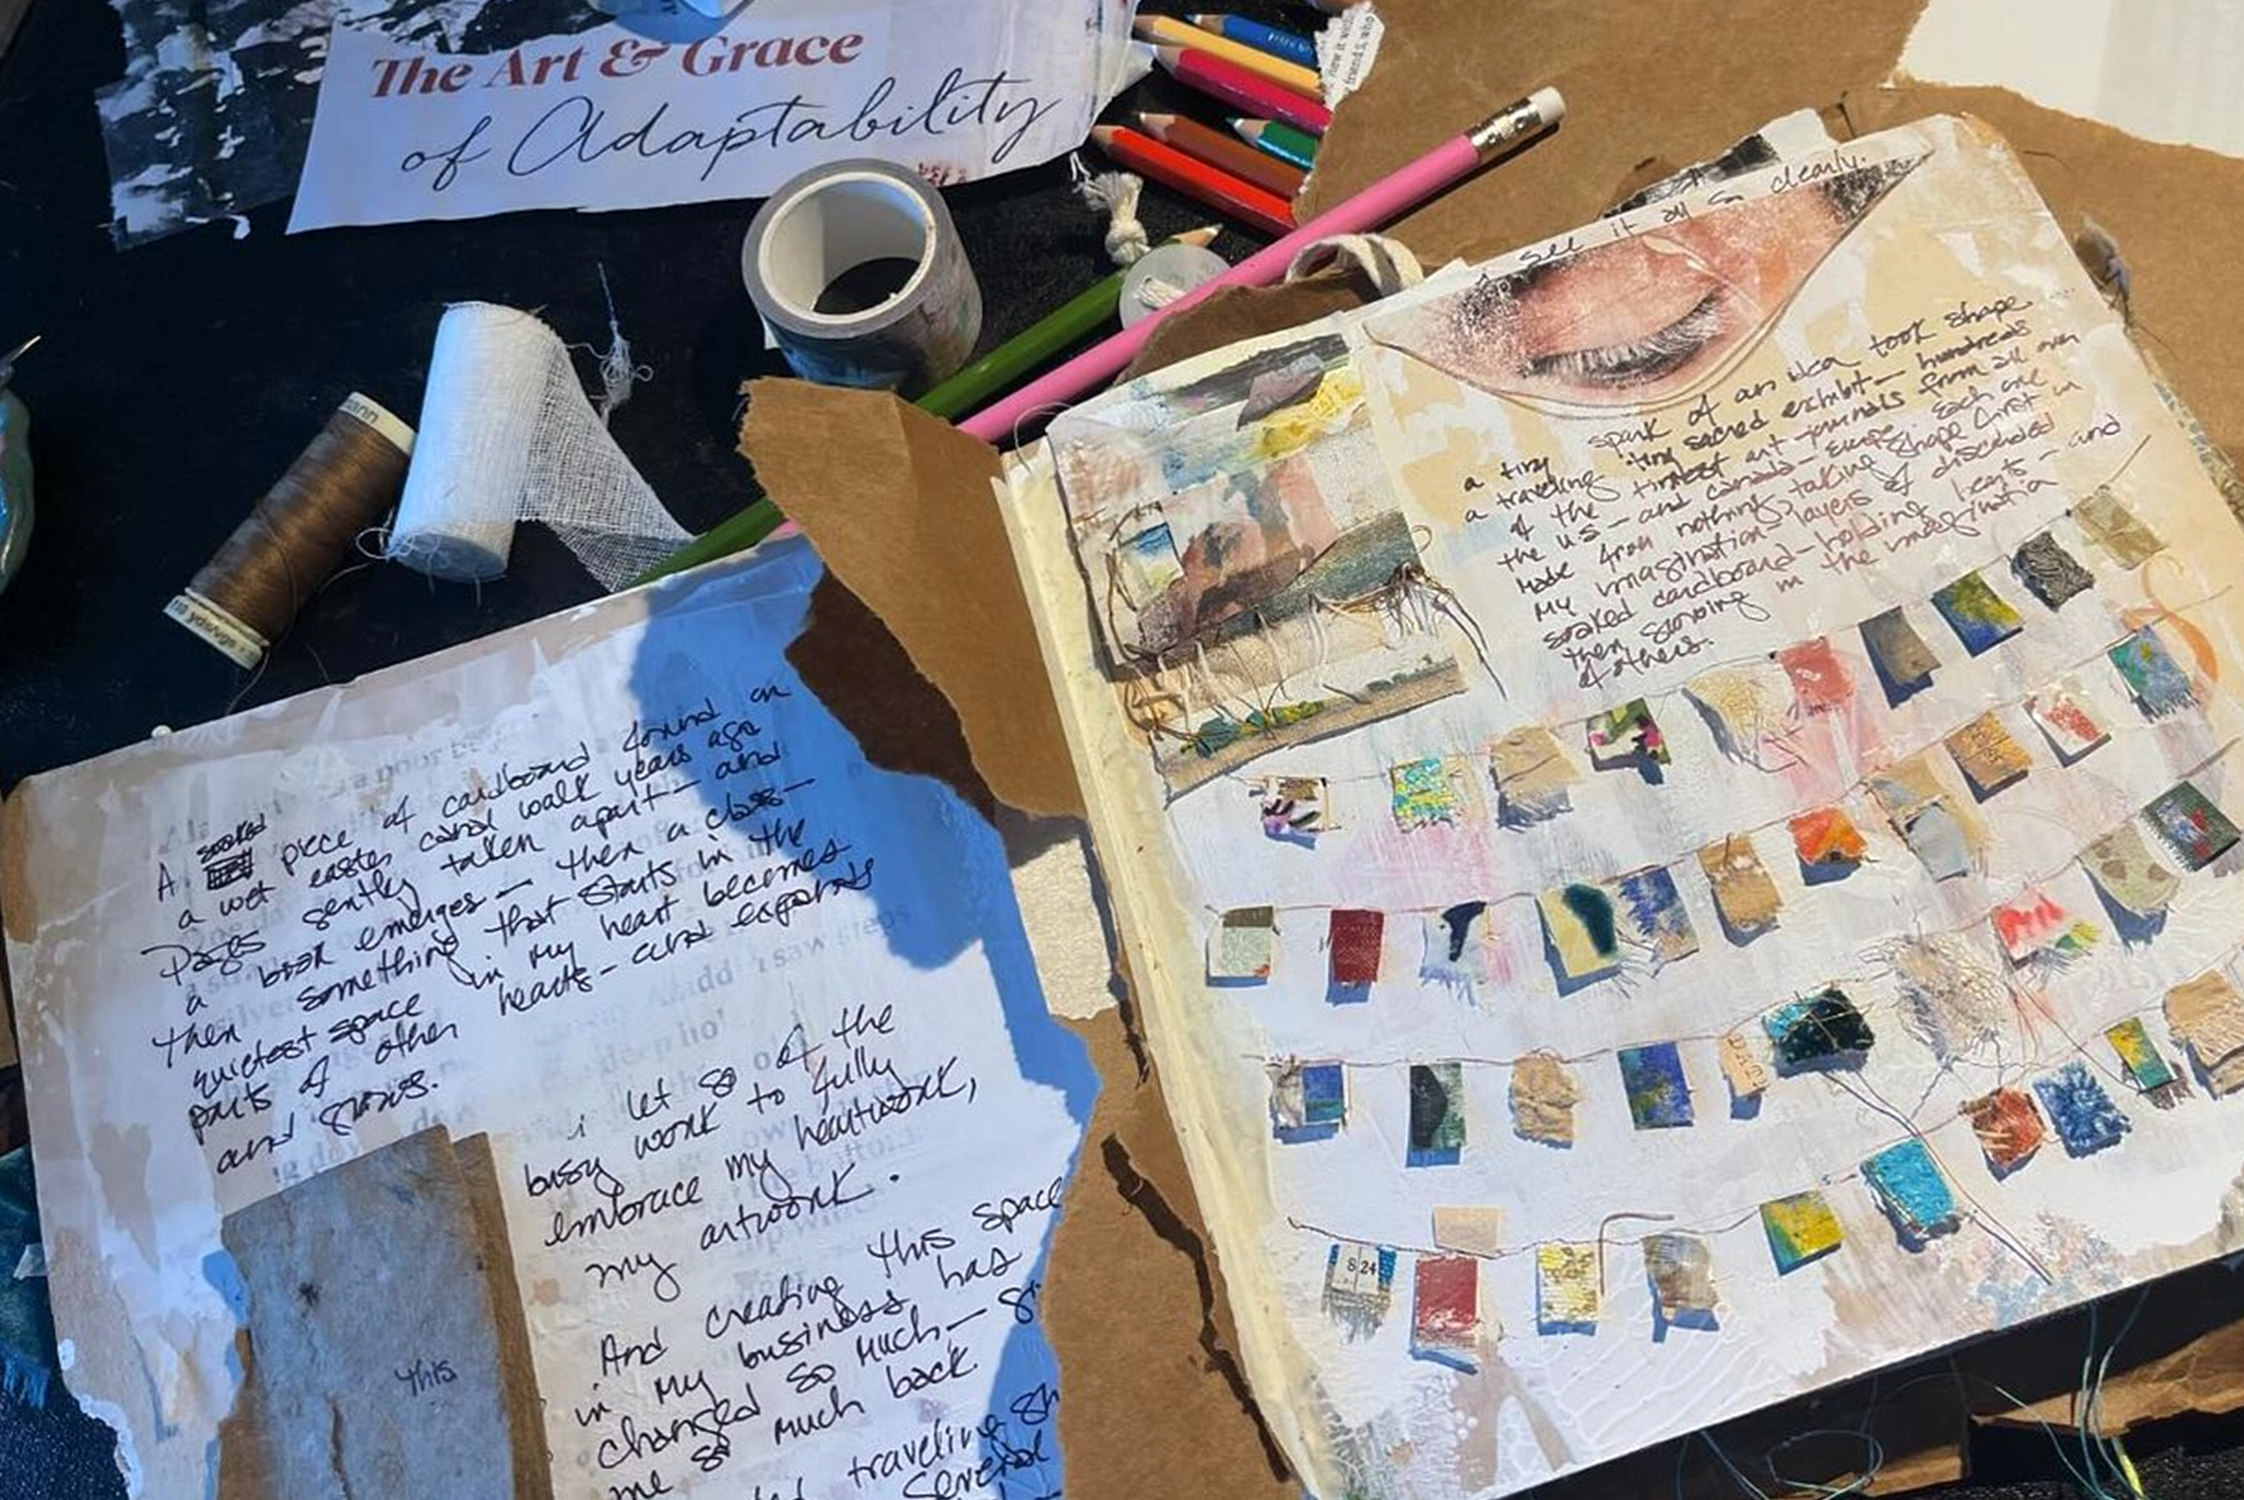 The Art & Grace
of Adaptability
I see it all so clearly.
a tiny spark of an idea took shape
traveling "tiny sacred exhibit — hundreds
of the tiniest art journals from all over
the US — and Canada — Europe. Each one
made from nothing, taking shape first in
my imagination layers of discarded
soaked cardboard — holding hearts — and
then growing in the imagination
of others.
A soaked piece of cardboard found on
a wet easter canal walk years ago
Pages gently taken apart — and
a book emerges — then a class —
then something that starts in the
quietest space in my heart becomes
parts of other hearts — and expands
and grows.
i let go of the
busy work to fully
embrace my heartwork,
my artwork.
And creating this space
in my business has
changed so much —
me so much back.
traveling
several
this
8 24